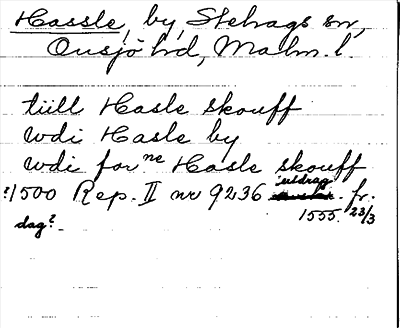 Hassle, by, Stehags sn,
Onsjö hd, Malm. l.
tiill Hasle skouff
wdi Hasle by
wdi for ne Hasle skouff
?1500 Rep. II nr 9236 utdrag fr.
1555. 23/3
dag?